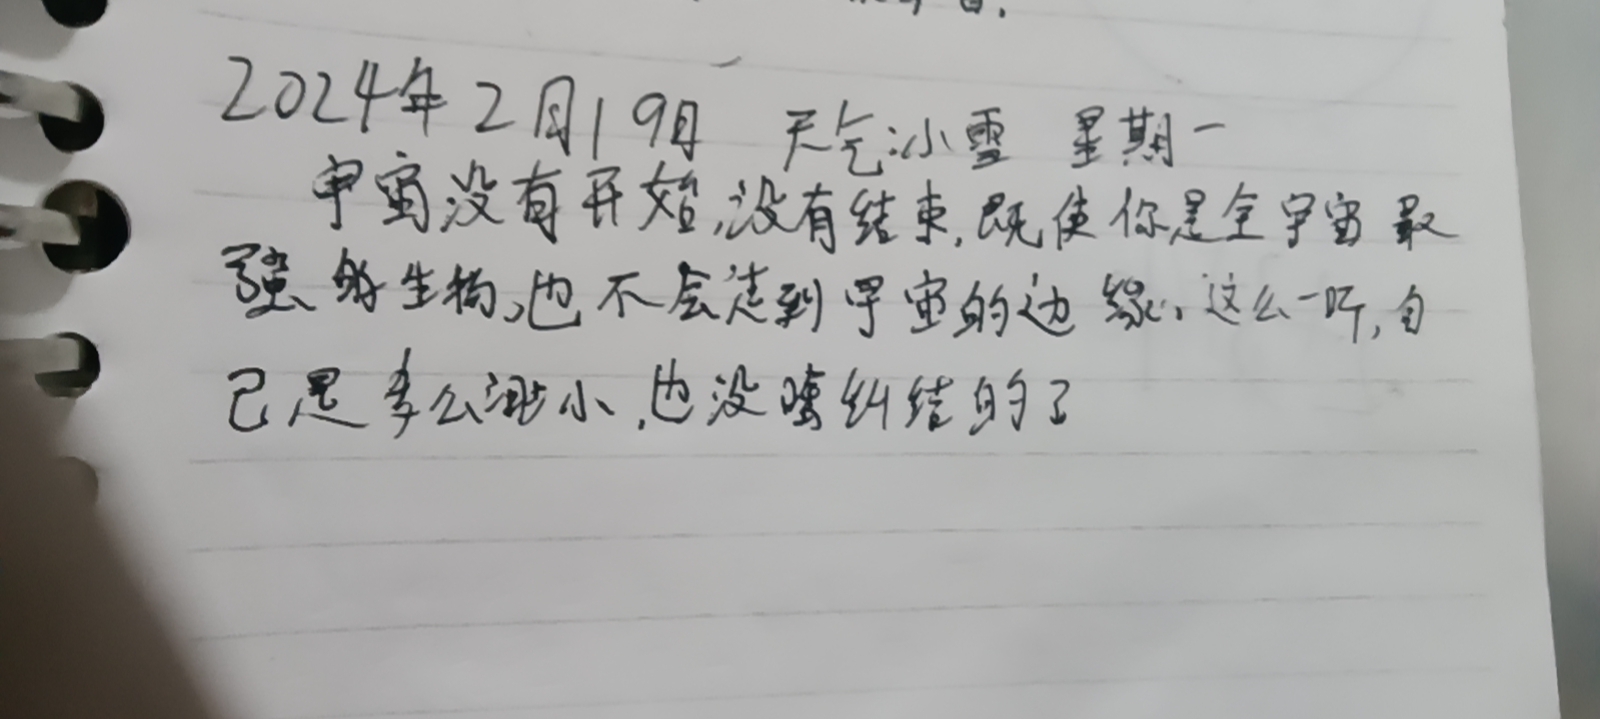 2024年2月19日 天气:小雪 星期一
宇宙没有开始,没有结束,既使你是全宇宙最
强的生物,也不会走到宇宙的边缘。这么一听,自
己是多么渺小,也没啥纠结的了